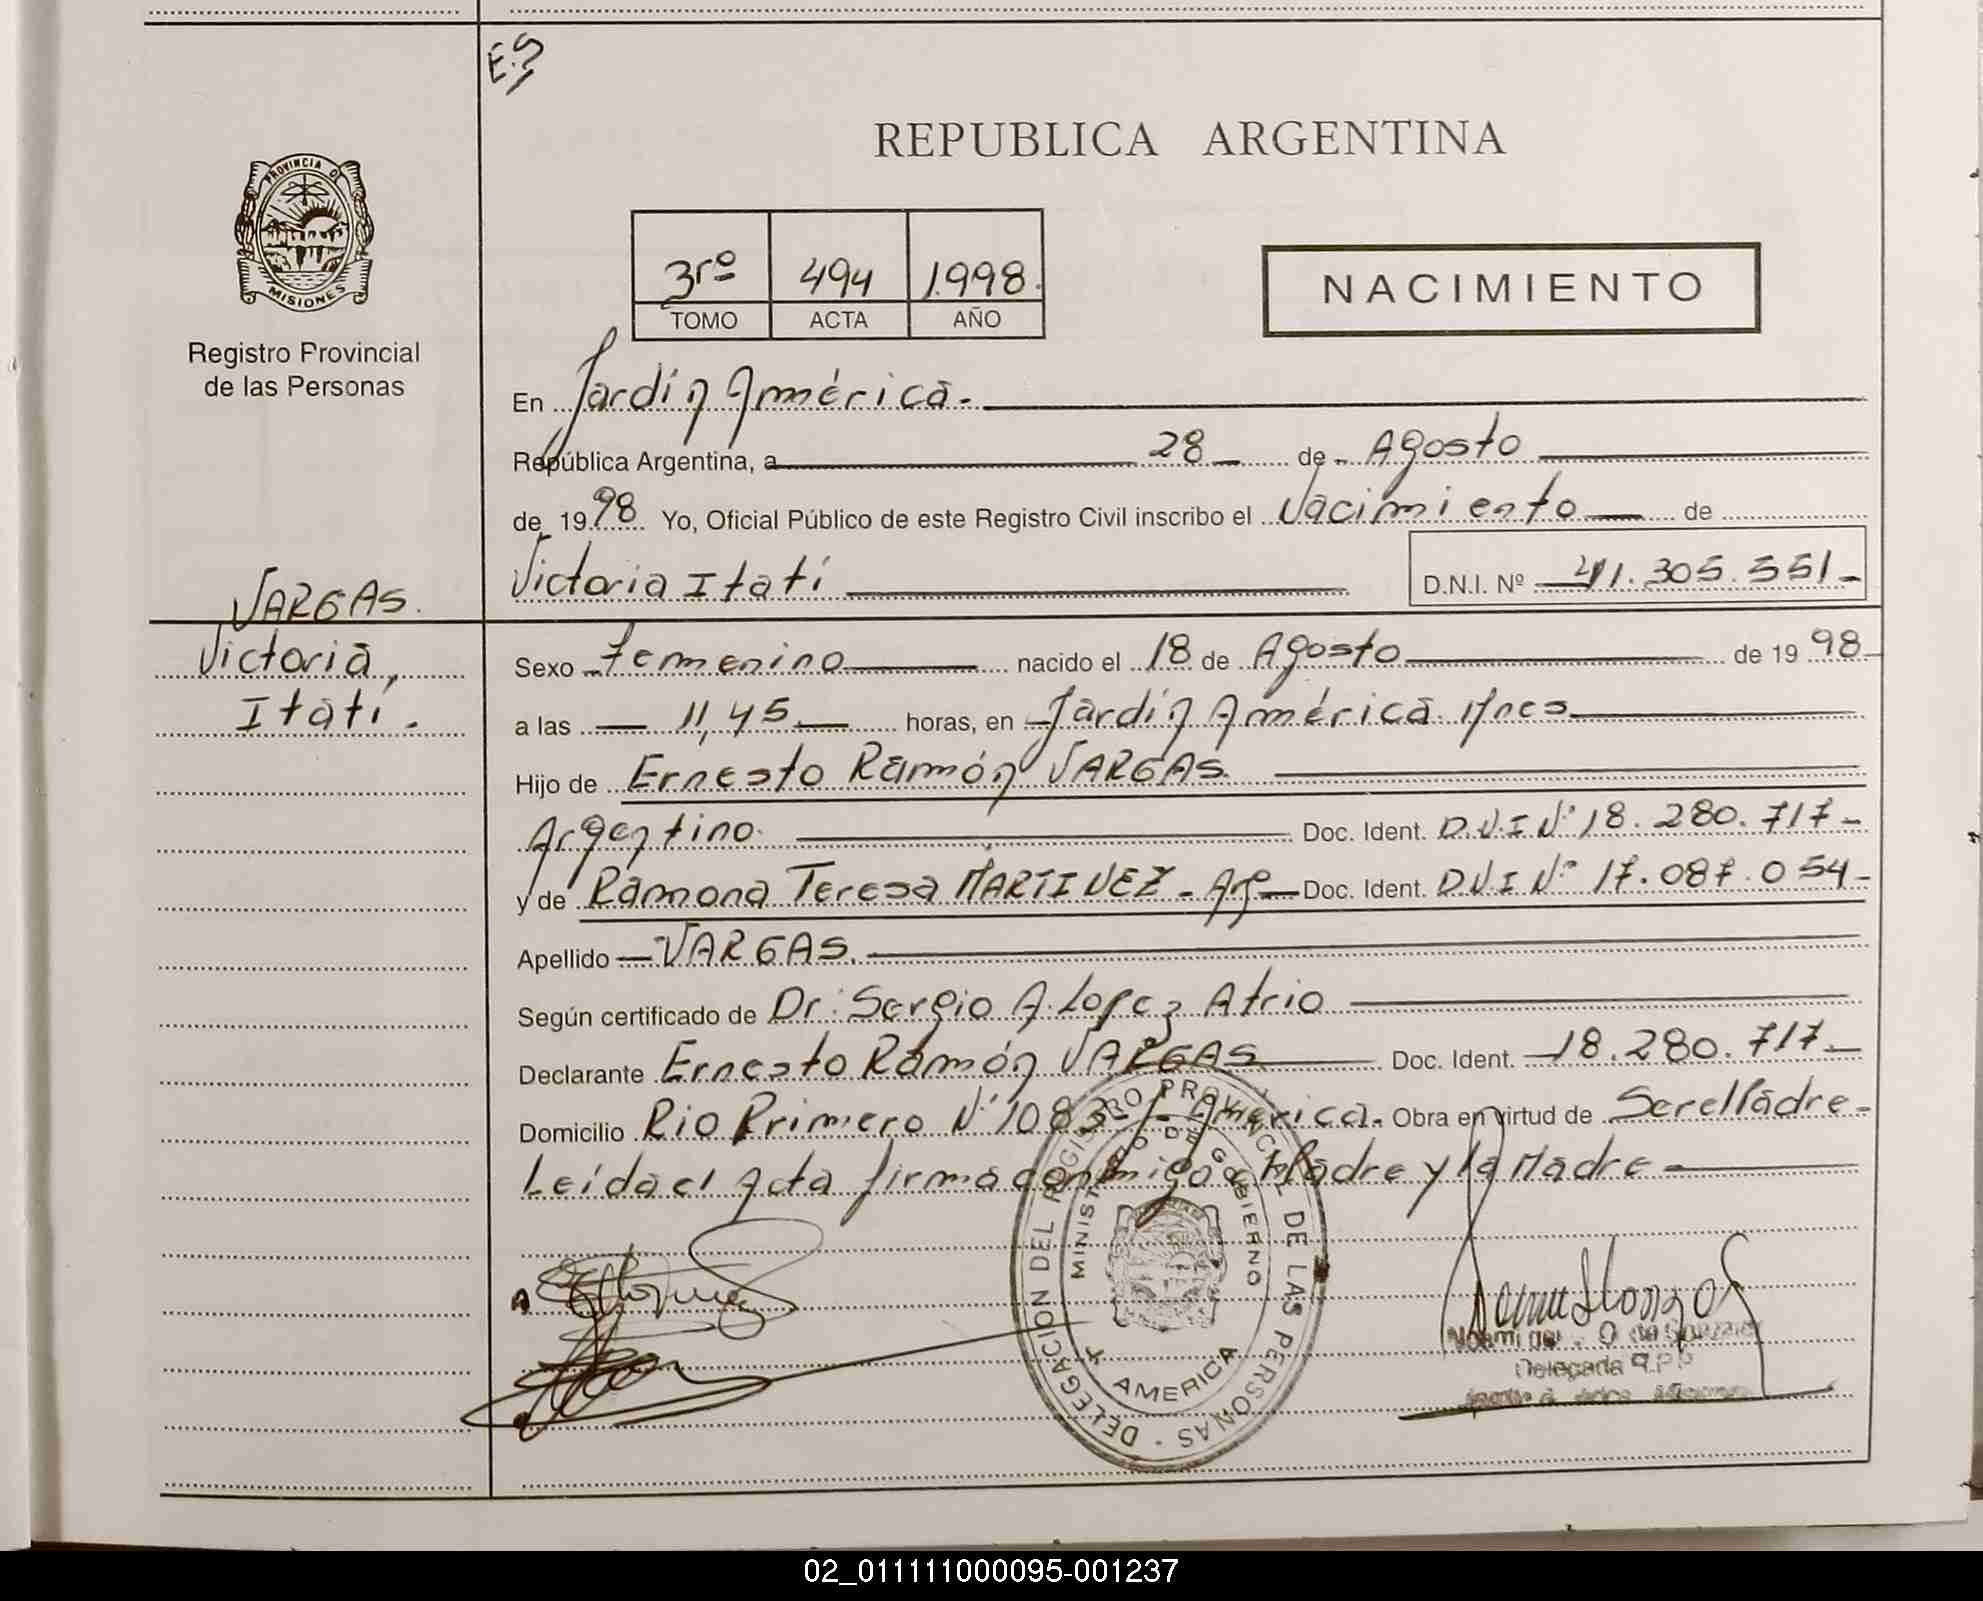 E.S
PROVINCIA D
MISIONES
Registro Provincial
de las Personas
REPUBLICA ARGENTINA
3ro 494 1.998.
TOMO ACTA AÑO
NACIMIENTO
En Jardín América.
República Argentina, a 28 de Agosto
de 1998 Yo, Oficial Público de este Registro Civil inscribo el Nacimiento de
Victoria Itatí D.N.I. Nº 41.305.551
VARGAS.
Victoria,
Itatí.
Sexo Femenino nacido el 18 de Agosto de 1998
a las 11,45 horas, en Jardín América Mnes
Hijo de Ernesto Ramón VARGAS.
Argentino. Doc. Ident. D.N.I Nº 18.280.717
y de Ramona Teresa MARTINEZ - Argº Doc. Ident. D.N.I Nº 17.087.054
Apellido VARGAS.
Según certificado de Dr. Sergio A. Lopez Atrio
Declarante Ernesto Ramón VARGAS Doc. Ident. 18.280.717.
Domicilio Rio Primero Nº 1083 - J. América. Obra en virtud de Ser el Padre
Leída el Acta firma conmigo el Padre y la Madre
DELEGACION DEL REGISTRO PROVINCIAL DE LAS PERSONAS
MINISTERIO DE GOBIERNO
AMERICA
Noemi de Gonzalez
Delegada R.P.P
02_011111000095-001237